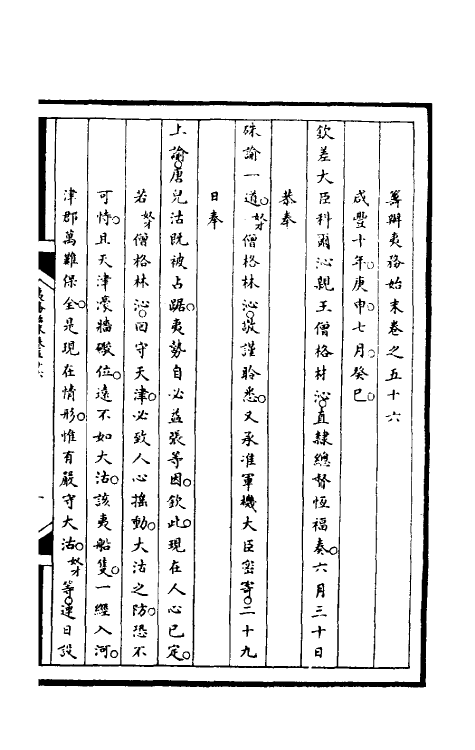 籌辦夷務始末卷之五十六
咸豐十年。庚申。七月。癸巳。
欽差大臣科爾沁親王僧格林沁。直隸總督恆福奏。六月三十日
恭奉
硃諭一道。奴才僧格林沁。敬謹聆悉。又承准軍機大臣密寄。二十九
日奉
上諭。唐兒沽既被占踞。夷勢自必益張等因。欽此。現在人心已定。
若奴才僧格林沁。回守天津。必致人心搖動。大沽之防。恐不
可恃。且天津濠牆礮位。遠不如大沽。該夷船隻。一經入河。
津郡萬難保全。是現在情形。惟有嚴守大沽。奴才等。連日設